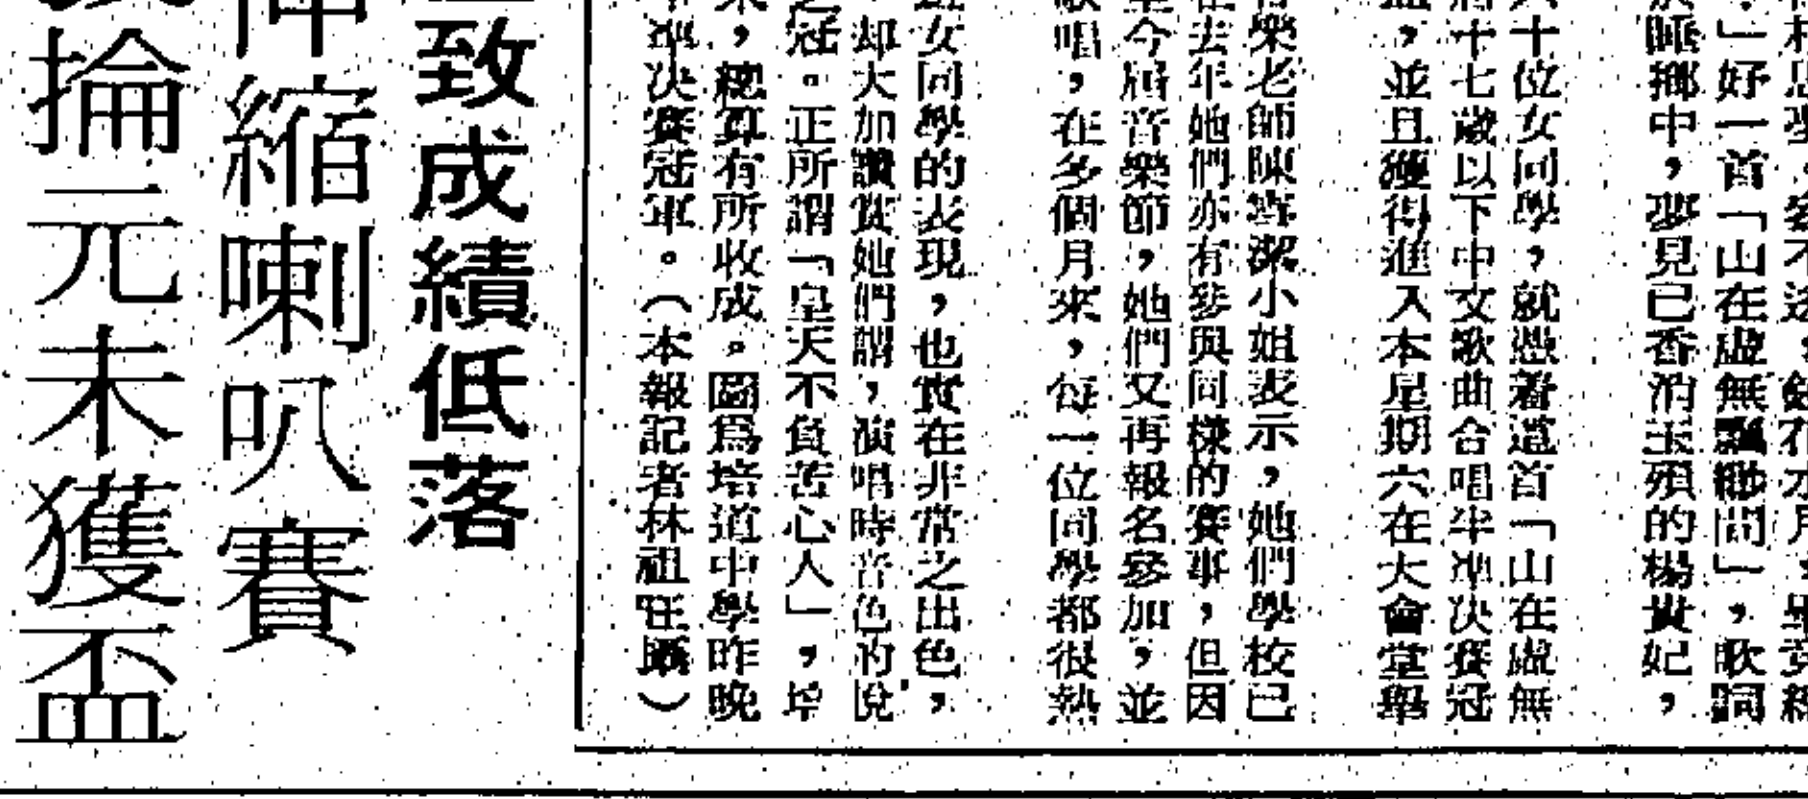 不
」好一首「山在虛無飄緲間」,歌詞
睡鄉中,夢見已香消玉殞的楊貴妃,
十位女同學,就憑着這首「山在虛無
十七歲以下中文歌曲合唱半準决賽冠
,並且獲得進入本星期六在大會堂舉
樂老師陳寄潔小姐表示,她們學校已
去年她們亦有參與同樣的賽事,但因
今屆音樂節,她們又再報名參加,並
唱,在多個月來,每一位同學都很熱
女同學的表現,也實在非常之出色,
却大加讚賞她們謂,演唱時音色的悅
冠。正所謂「皇天不負苦心人」,培
,總算有所收成。圖爲培道中學昨晚
準决賽冠軍。(本報記者林祖旺攝)
致成績低落
伸縮喇叭賽
掄元未獲盃